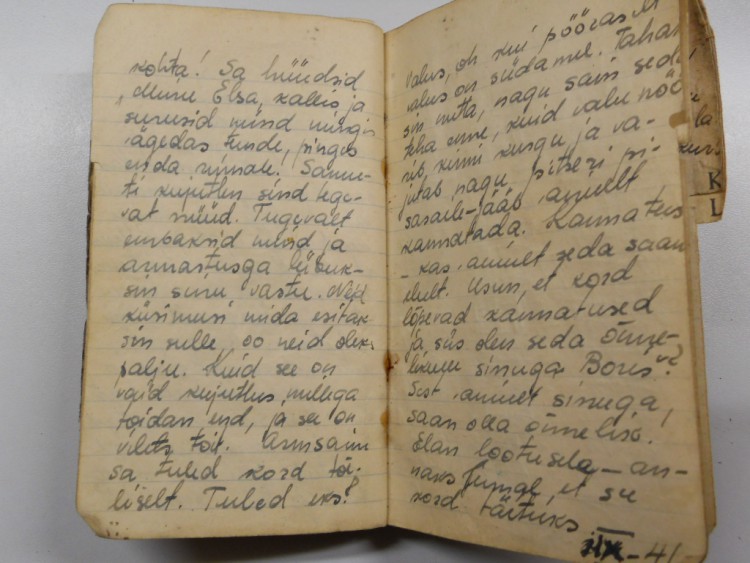 kohta! Sa hüüdsid
"Minu Elsa, kallis ja
surusid mind mingis
ägedas tunde, pinges
enda rinnale. Samu-
ti kujutlen sind tege-
vat nüüd. Tugevalt
embaksid mind ja
armastusga liibuk-
sin sinu vastu. Neid
küsimusi mida esitak-
sin sulle, oo neid oleks
palju. Kuid see on
vaid kujutlus millega
toidan end, ja see on
vilets toit. Armsaim
sa tuled kord tõe-
liselt. Tuled eks?
valus, oh kui pööraselt
valus on südamel. Tahan
siin nutta, nagu sain seda
teha enne, kuid valu nöö-
rib kinni kurgu ja va-
jutab nagu pitseri pi-
sasaile-jääb ainult
kannatada. Kannatus-
- kas ainult seda saan
elult. Usun, et kord
lõpevad kannatused
ja siis olen seda õnne-
likum sinuga Boris?
Sest ainult sinuga,
saan olla õnnelik.
Elan lootusela – an-
naks Jumal, et see
kord täituks.
IX – 41
la
K
L